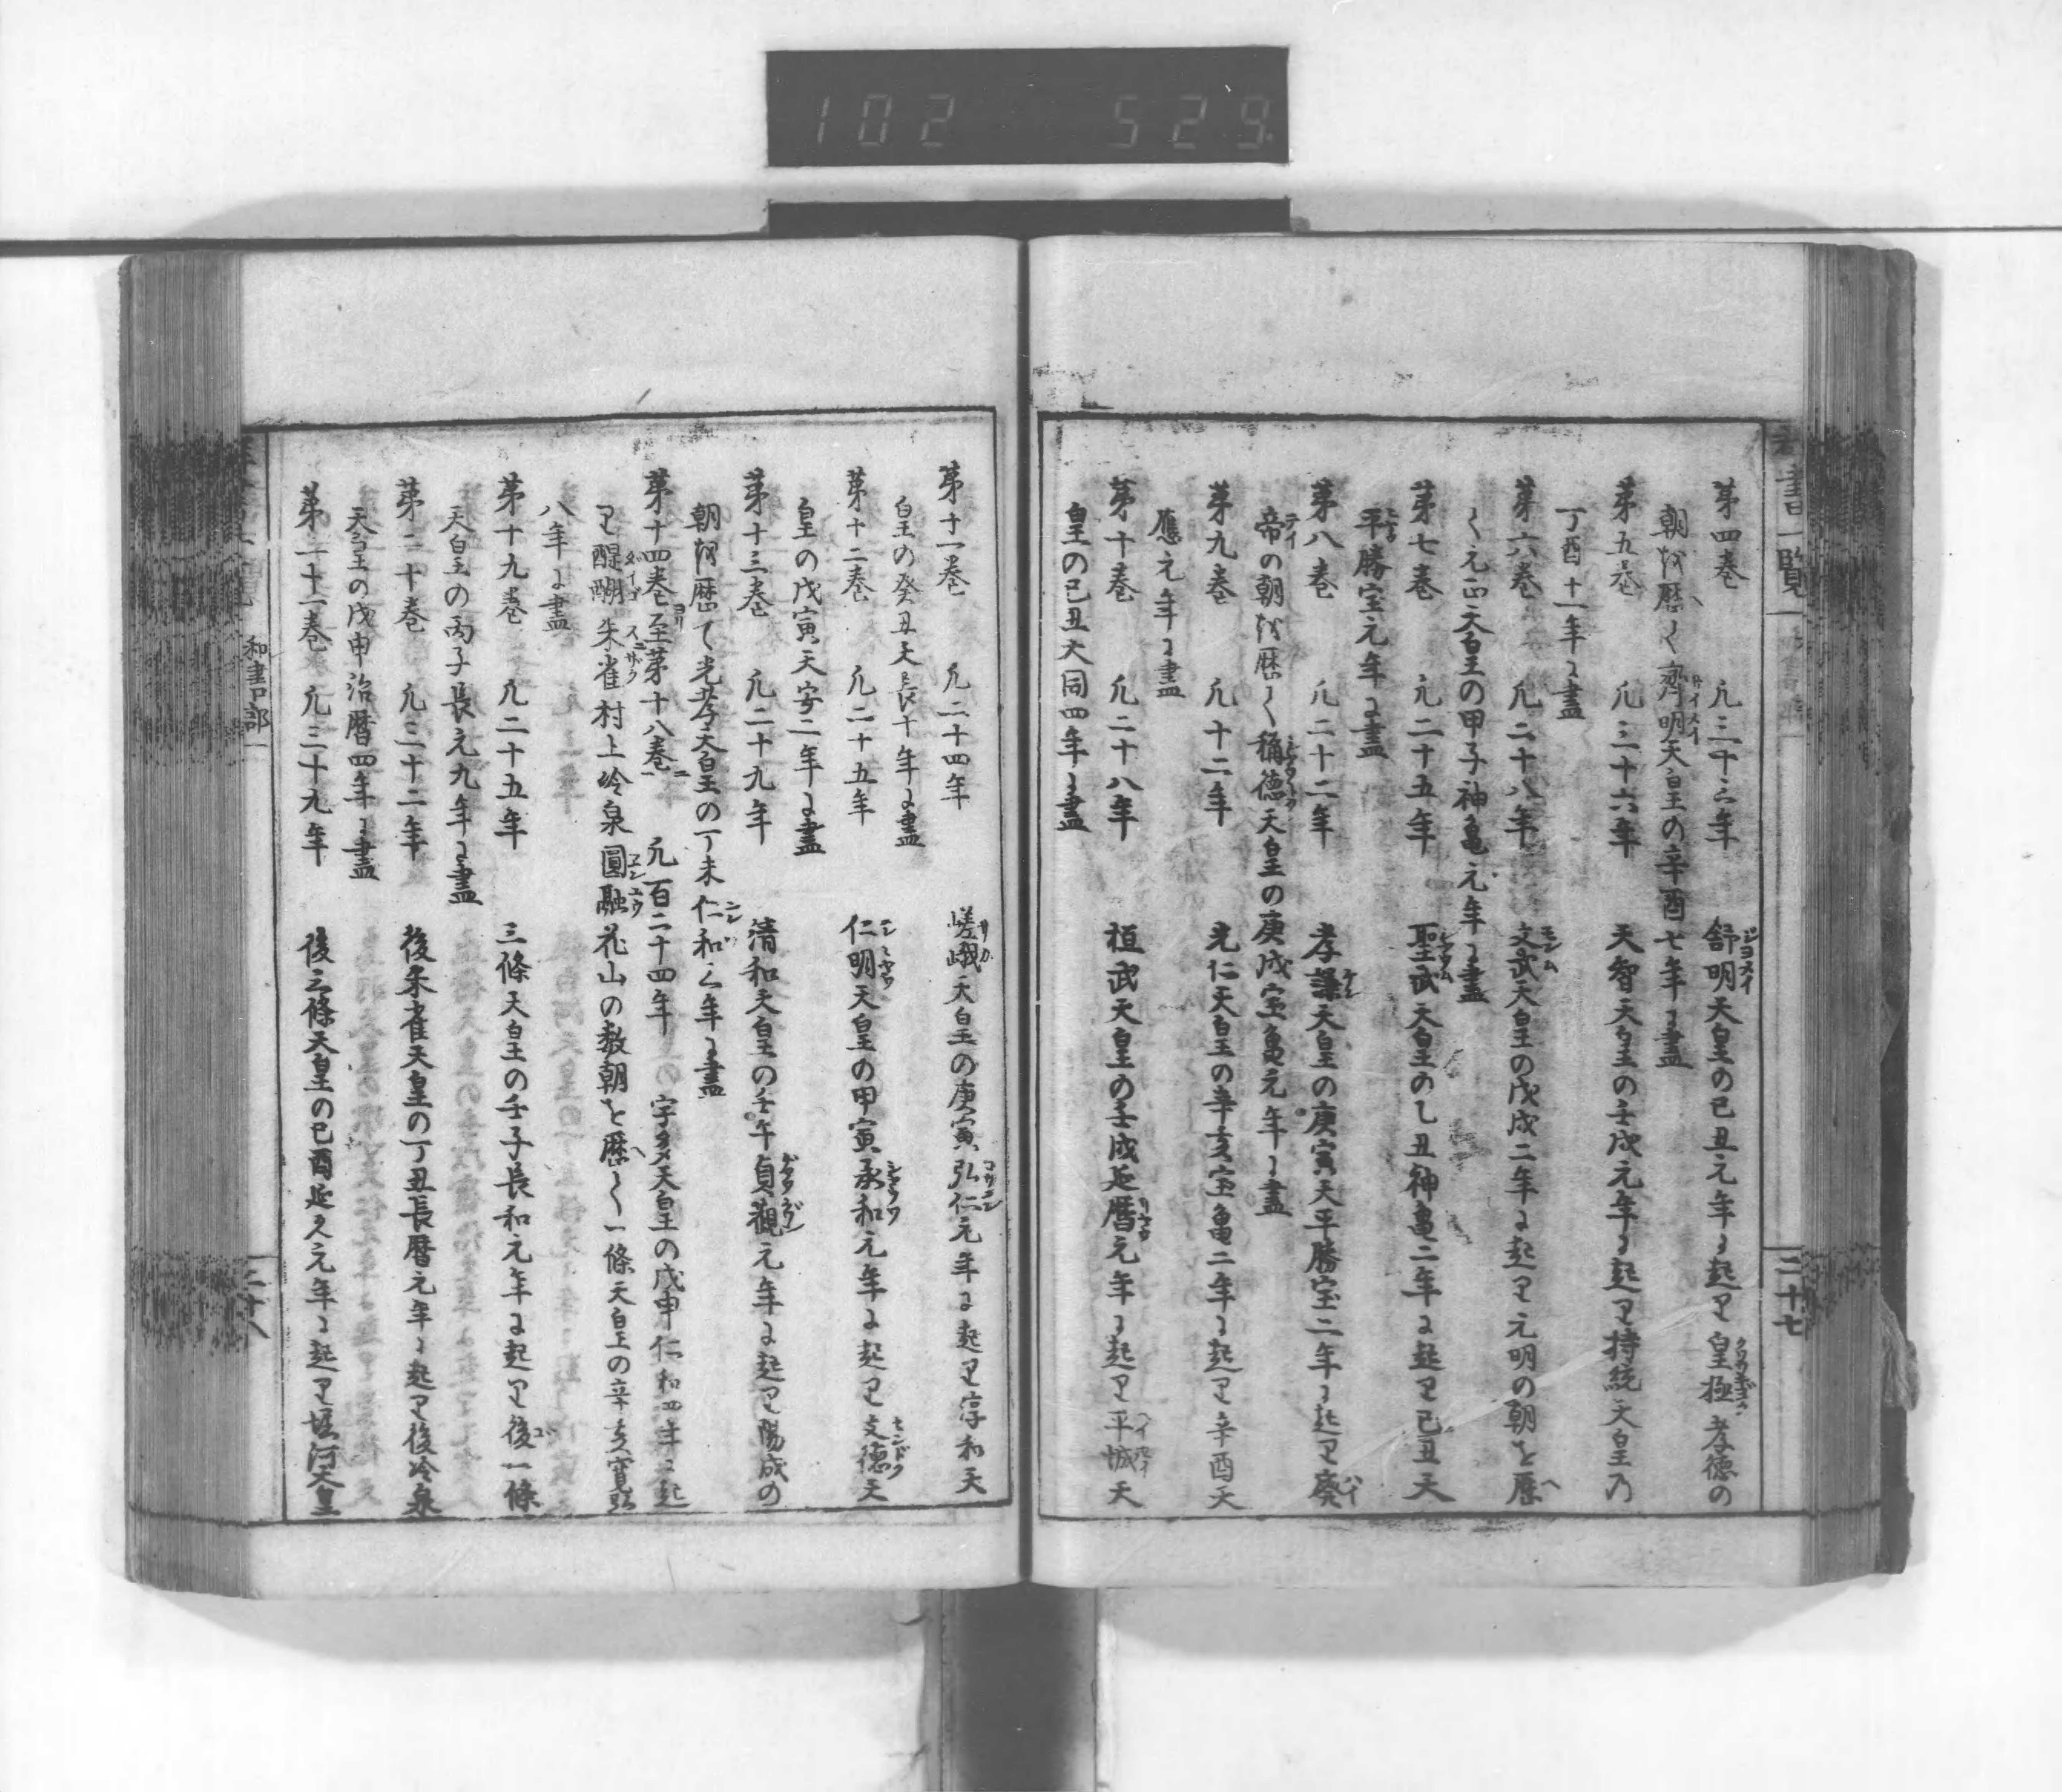 102 529
第四巻 凢三十三年 舒明天皇の己丑元年ニ起リ皇極孝徳の
朝を歴て齊明天皇の辛酉七年ニ盡
第五巻 凢三十六年 天智天皇の壬戌元年ニ起リ持統天皇乃
丁酉十一年ニ盡
第六巻 凢二十八年 文武天皇の戊戌二年ニ起リ元明の朝を歴
て元正天皇の甲子神亀元年ニ盡
第七巻 凢二十五年 聖武天皇の乙丑神亀二年ニ起リ己丑天
平勝宝元年ニ盡
第八巻 凢二十二年 孝謙天皇の庚寅天平勝宝二年ニ起リ廢
帝の朝を歴て稱徳天皇の庚戌宝亀元年ニ盡
第九巻 凢十二年 光仁天皇の辛亥宝亀二年ニ起リ辛酉天
應元年ニ盡
第十巻 凢二十八年 桓武天皇の壬戌延暦元年ニ起リ平城天
皇の己丑大同四年ニ盡
書一覧一
三十七
第十一巻 凢二十四年 嵯峨天皇の庚寅弘仁元年ニ起リ淳和天
皇の癸丑天長十年ニ盡
第十二巻 凢二十五年 仁明天皇の甲寅承和元年ニ起リ文徳天
皇の戊寅天安二年ニ盡
第十三巻 凢二十九年 清和天皇の壬午貞觀元年ニ起リ陽成の
朝を歴て光孝天皇の丁未仁和三年ニ盡
第十四巻ヨリ至第十八巻ニ 凢一百二十四年 宇多天皇の戊申仁和四年ニ起
リ醍醐朱雀村上冷泉圓融花山の数朝を歴て一條天皇の辛亥寛弘
八年ニ盡
第十九巻 凢二十五年 三條天皇の壬子長和元年ニ起リ後一條
天皇の丙子長元九年ニ盡
第二十巻 凢三十二年 後朱雀天皇の丁丑長暦元年ニ起リ後冷泉
天皇の戊申治暦四年ニ盡
第二十一巻 凢三十九年 後三條天皇の己酉延久元年ニ起リ堀河天皇
和書部一
三十八